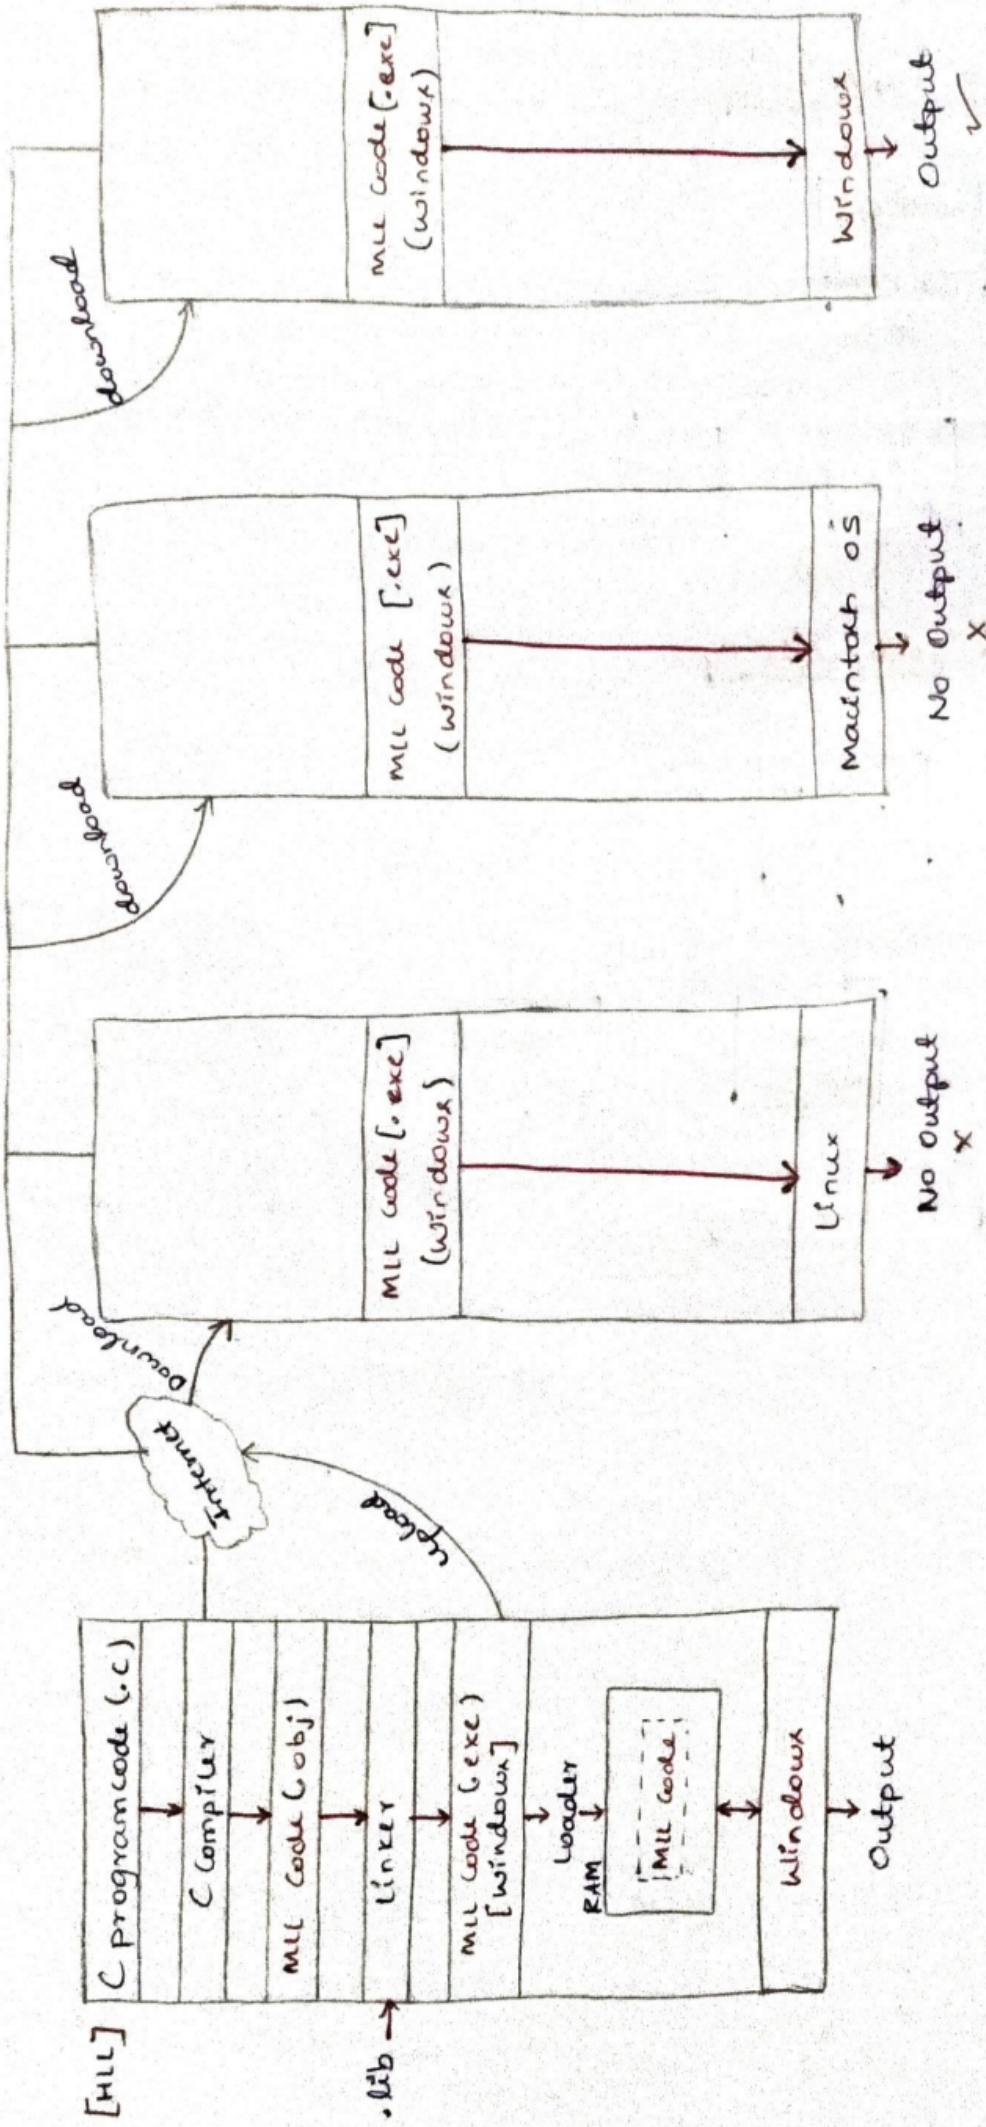 [HLL]
C programcode (.c)
C Compiler
MLL Code (obj)
.lib
Linker
MLL Code (exe)
[Windows]
Loader
RAM
MLL Code
Windows
Output
upload
Internet
Download
MLL Code [.exe]
(Windows)
Linux
No Output
x
download
MLL Code [.exe]
(Windows)
Macintosh OS
No Output
x
download
MLL Code [.exe]
(Windows)
Windows
Output
✓